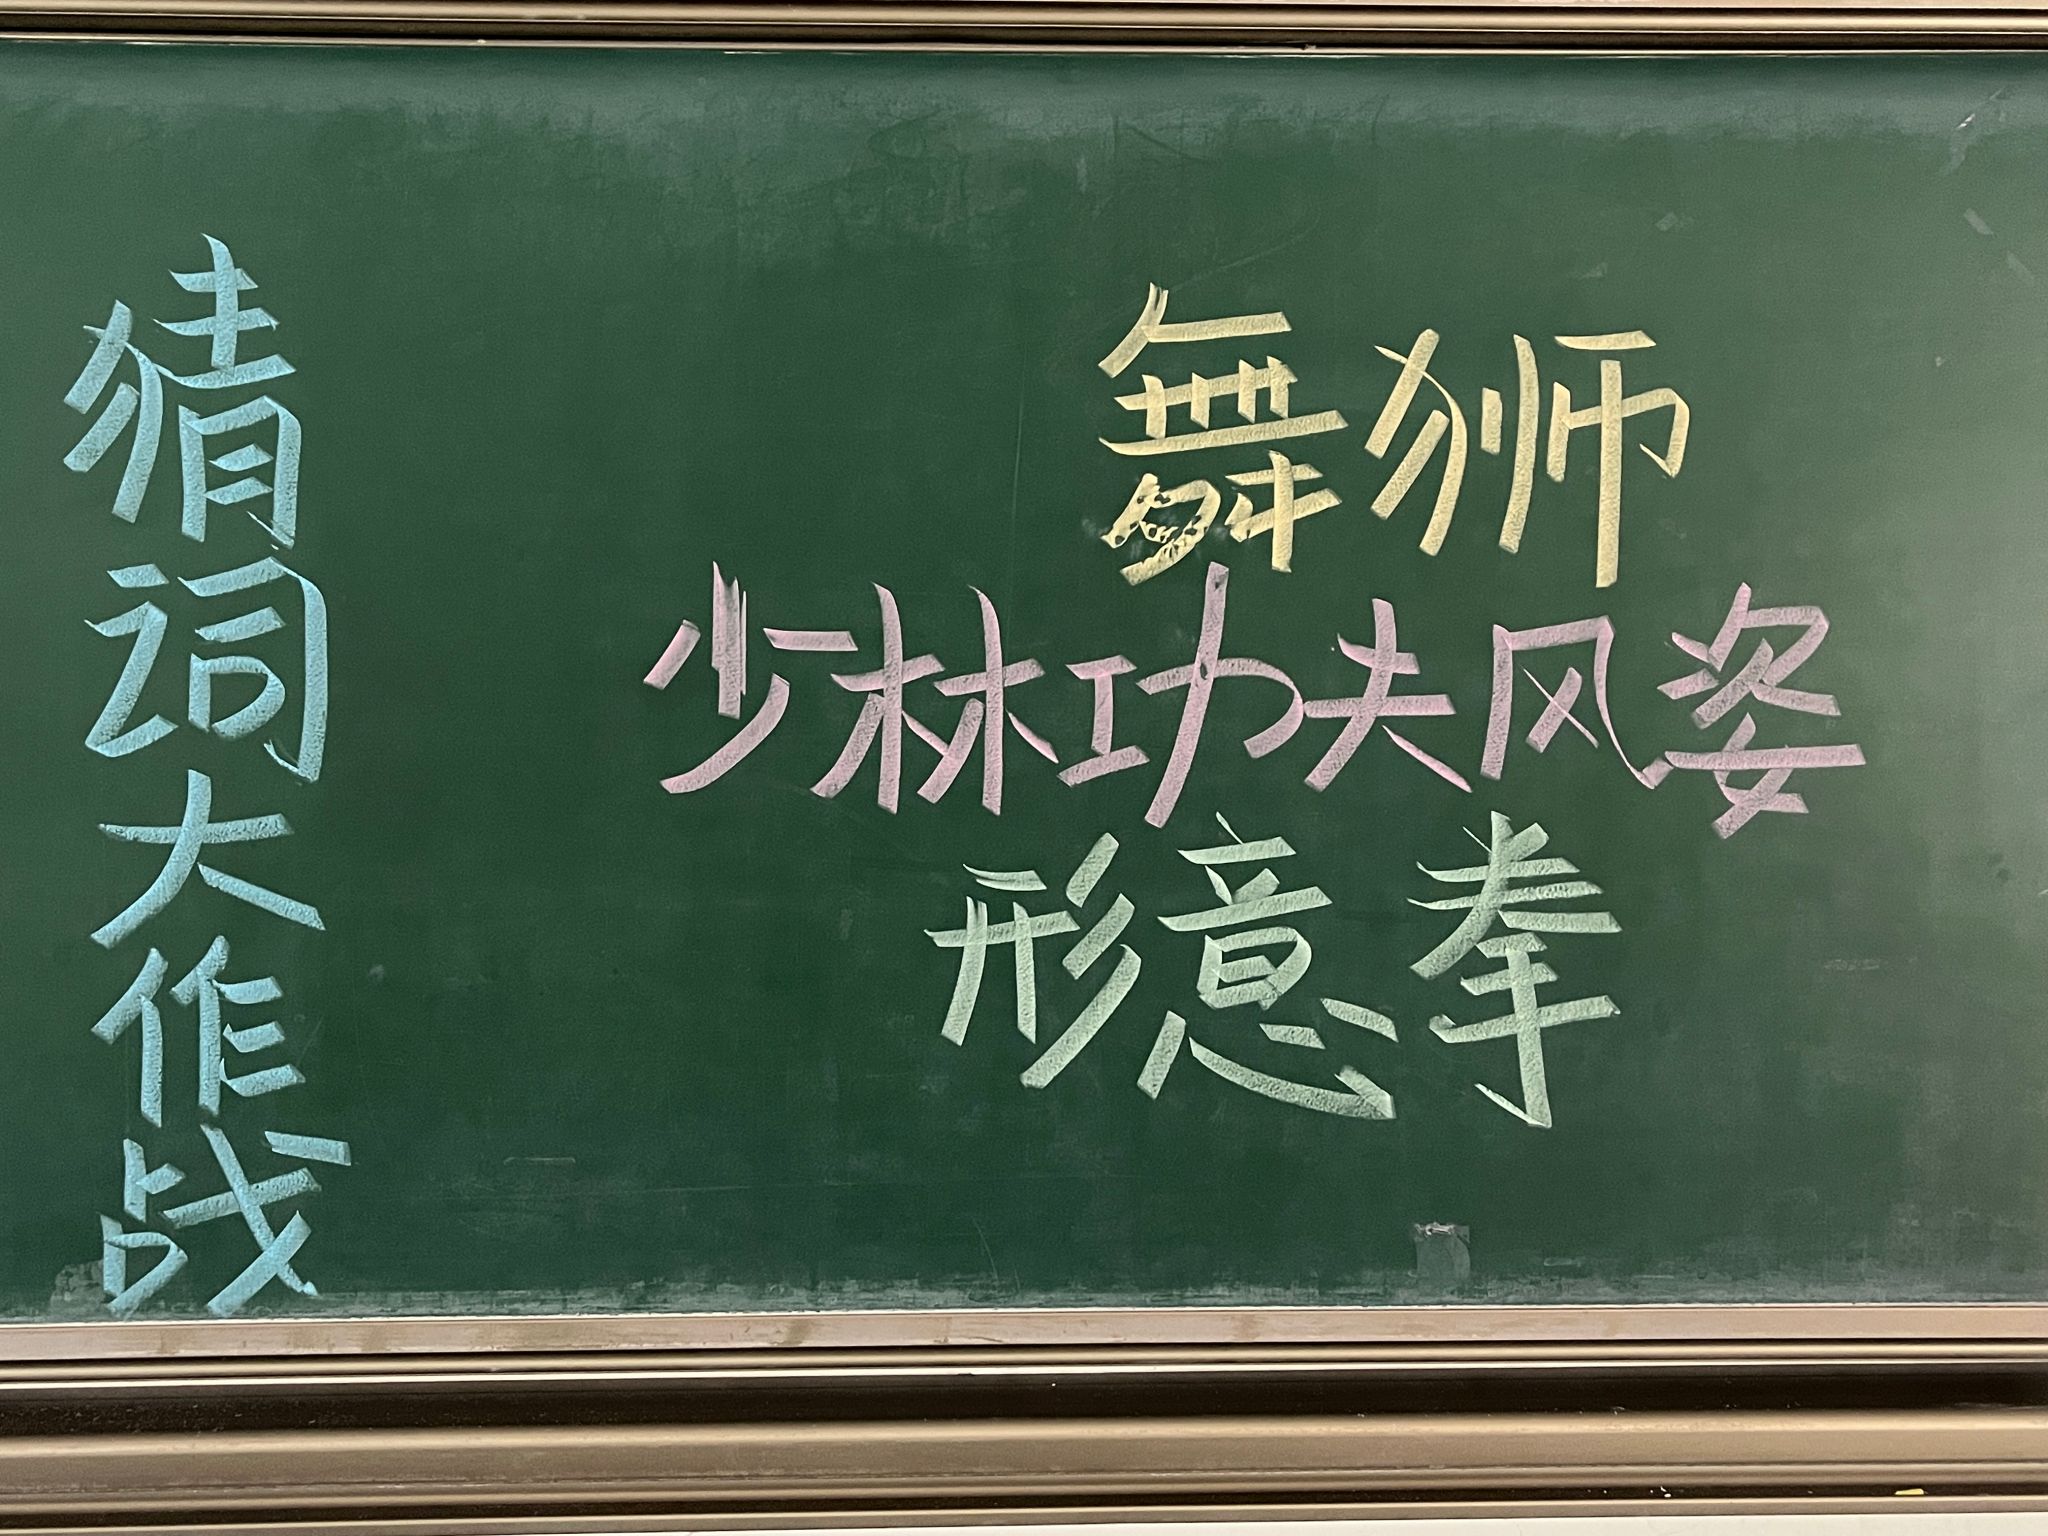 猜词大作战
舞狮
少林功夫风姿
形意拳